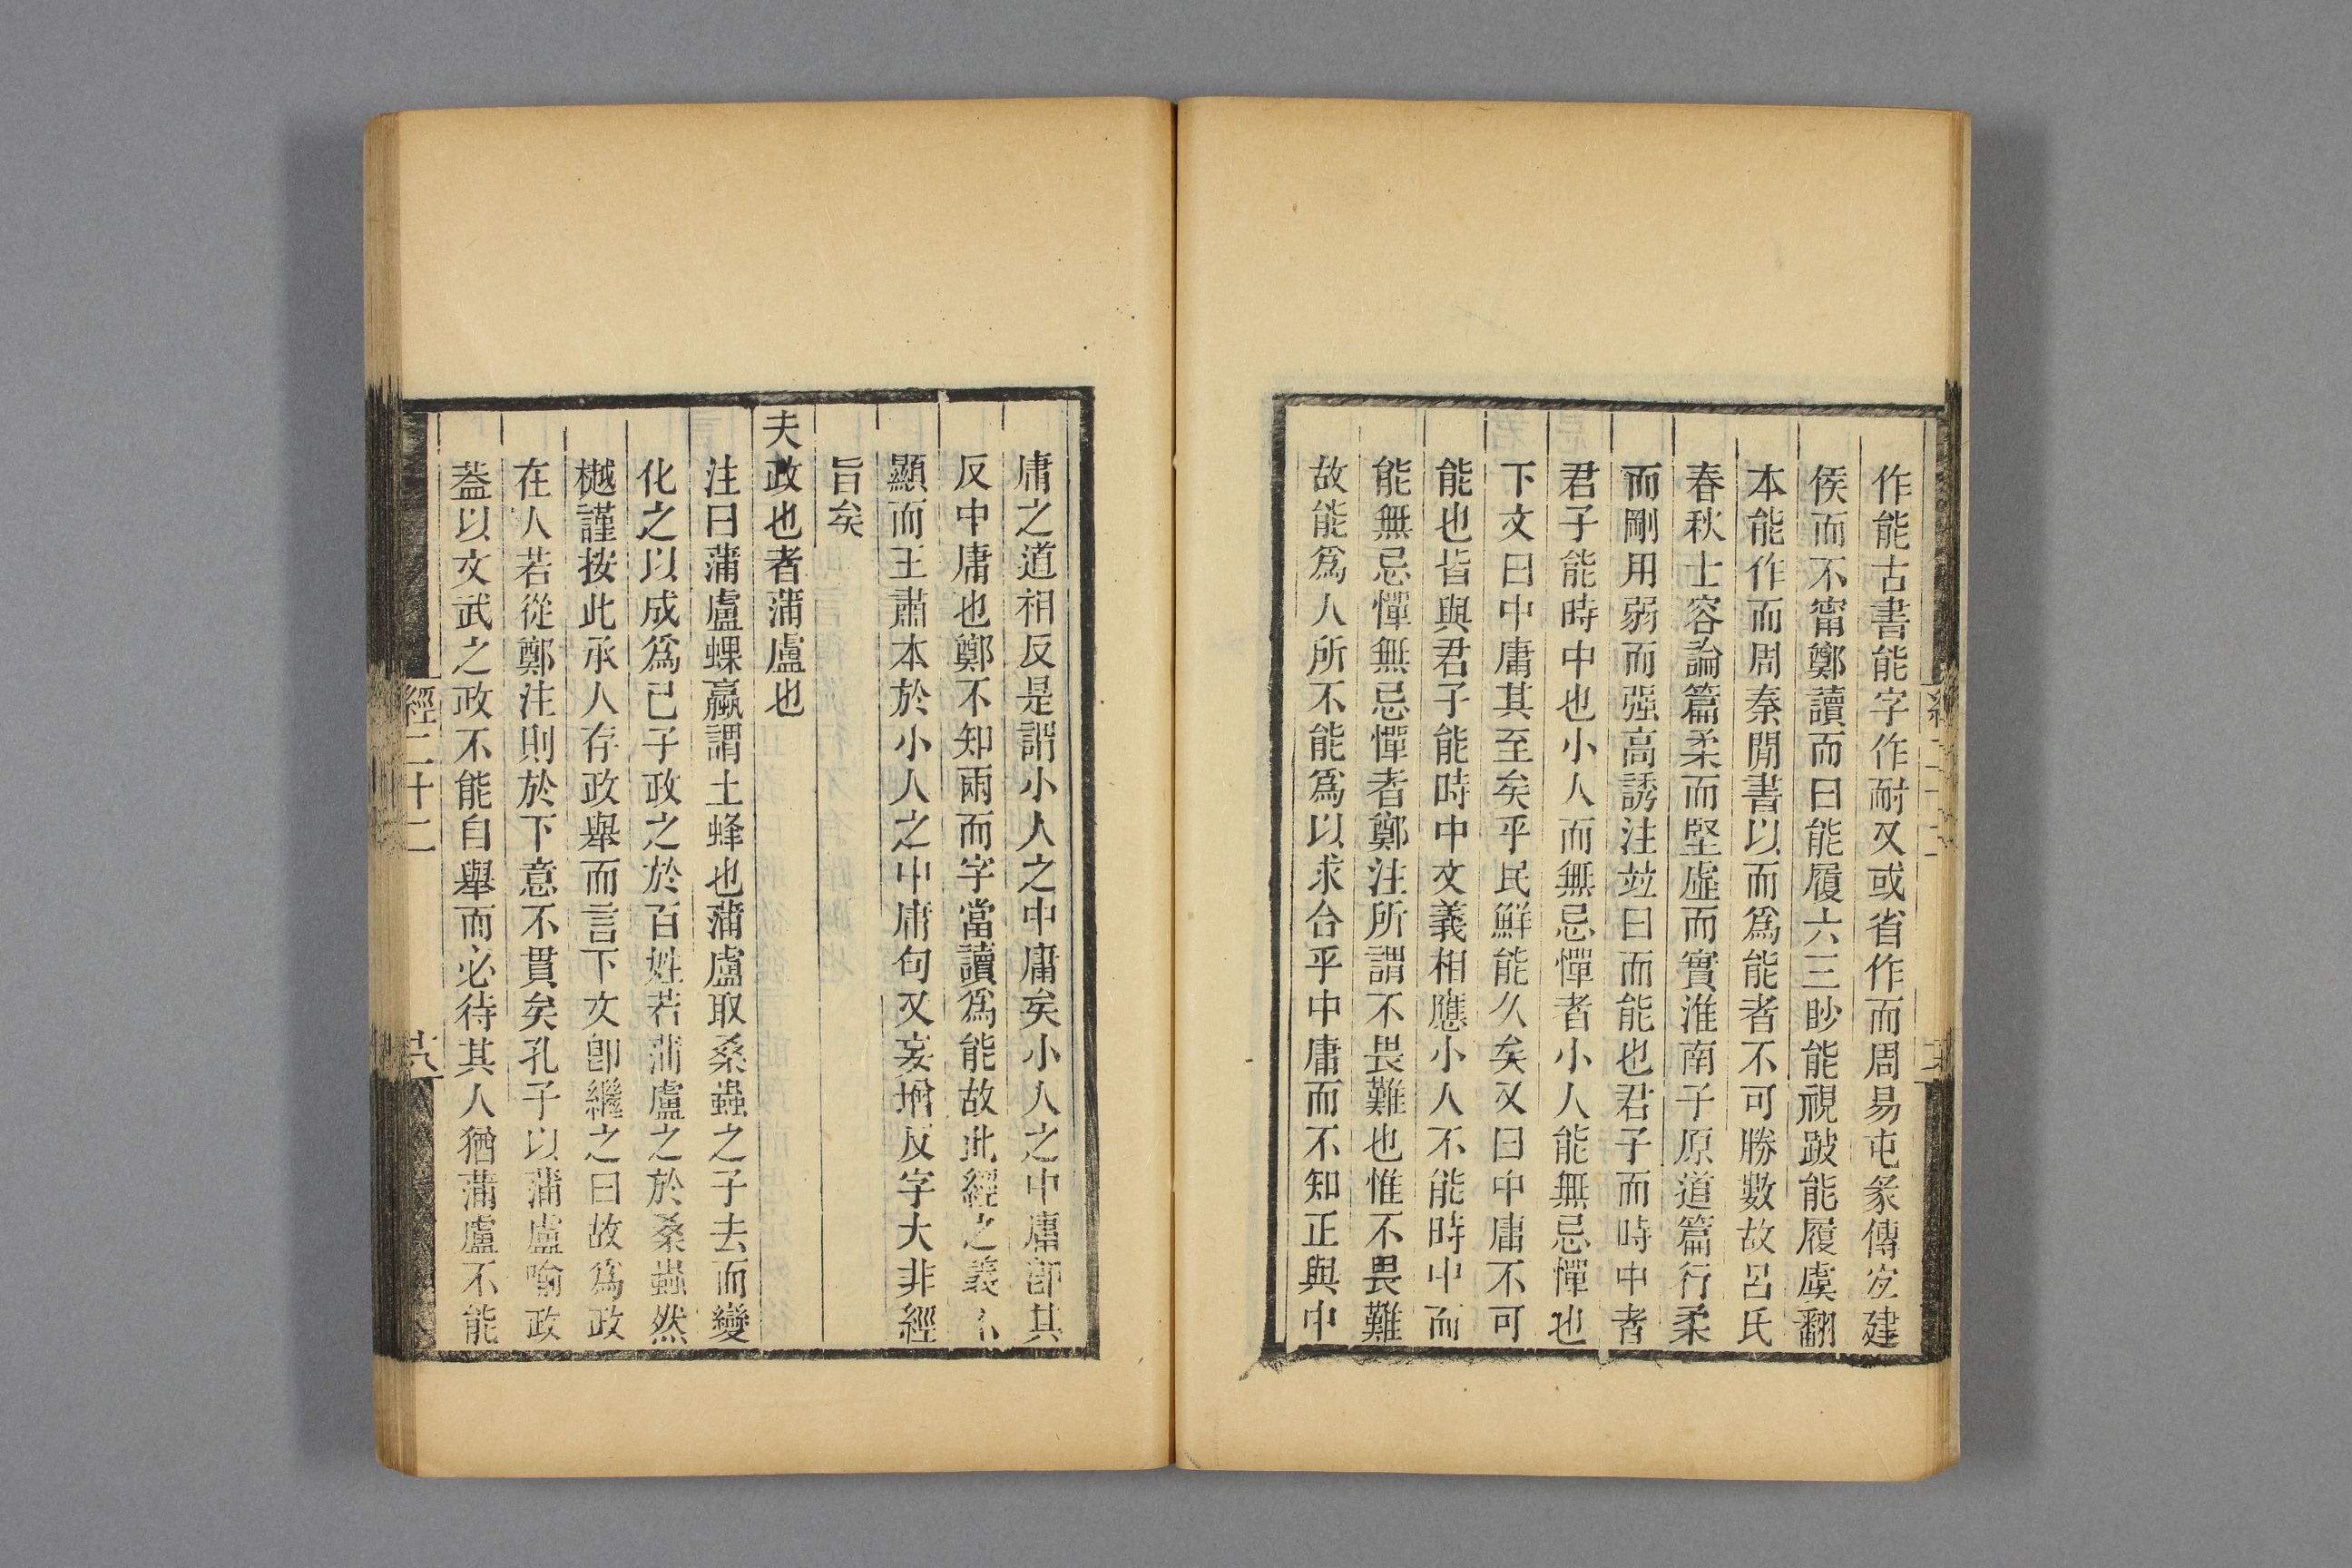 作能古書能字作耐又或省作而周易屯彖傳宐建
侯而不甯鄭讀而曰能履六三眇能視跛能履虞翻
本能作而周秦閒書以而爲能者不可勝數故呂氏
春秋士容論篇柔而堅虛而實淮南子原道篇行柔
而剛用弱而强高誘注竝曰而能也君子而時中者
君子能時中也小人而無忌憚者小人能無忌憚也
下文曰中庸其至矣乎民鮮能久矣又曰中庸不可
能也皆與君子能時中文義相應小人不能時中而
能無忌憚無忌憚者鄭注所謂不畏難也惟不畏難
故能爲人所不能爲以求合乎中庸而不知正與中
庸之道相反是謂小人之中庸矣小人之中庸卽其
反中庸也鄭不知兩而字當讀爲能故此經之義不
顯而王肅本於小人之中庸句又妄增反字大非經
旨矣
夫政也者蒲盧也
注曰蒲盧蜾蠃謂土蜂也蒲盧取桑蟲之子去而變
化之以成爲己子政之於百姓若蒲盧之於桑蟲然
樾謹按此承人存政舉而言下文卽繼之曰故爲政
在人若從鄭注則於下意不貫矣孔子以蒲盧喻政
葢以文武之政不能自舉而必待其人猶蒲盧不能
經二十二
十六